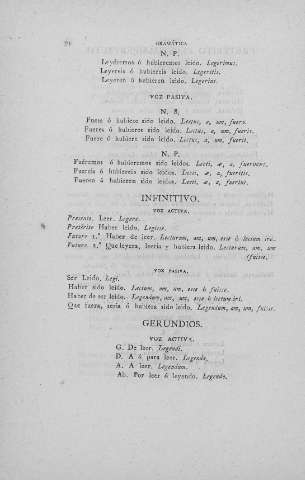 GRAMÁTICA
N. P.
Leyéremos ó hubiéremos leido. Legerimus.
Leyereis ó hubiereis leido. Legeritis.
Leyeren ó hubieren leido. Legerint.
VOZ PASIVA.
N. S.
Fuere ó hubiere sido leido. Lectus, a, um, fuero.
Fueres ó hubieres sido leido. Lectus, a, um, fueris.
Fuere ó hubiere sido leido. Lectus, a, um, fuerit.
N. P.
Fuéremos ó hubiéremos sido leidos. Lecti, æ, a, fuerimus.
Fuereis ó hubiereis sido leidos. Lecti, æ, a, fueritis.
Fueren ó hubieren sido leidos. Lecti, æ, a, fuerint.
INFINITIVO.
VOZ ACTIVA.
Presente. Leer. Legere.
Pretérito Haber leido. Legisse.
Futuro 1.º Haber de leer. Lecturum, am, um, esse ó lectum iri.
Futuro 2.º Que leyera, leeria y hubiera leido. Lecturum, am, um
(fuisse.
VOZ PASIVA.
Ser Leido, Legi.
Haber sido leido. Lectum, am, um, esse ó fuisse.
Haber de ser leido. Legendum, am, um, esse ó lectum iri.
Que fuera, seria ó hubiera sido leido. Legendum, am, um, fuisse.
GERUNDIOS.
VOZ ACTIVA.
G. De leer. Legendi.
D. A ó para leer. Legendo.
A. A leer. Legendum.
Ab. Por leer ó leyendo. Legendo.